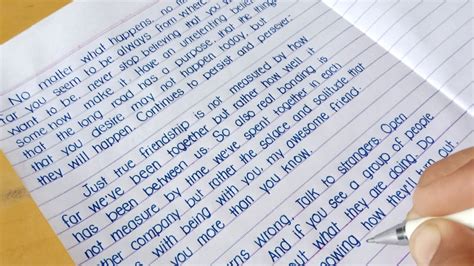 No matter what happens, no
far you seem to be always from where
want to be, never stop believing that you
some how make it. Have an unrelenting belief
that the long road has a purpose that the things
that you desire may not happen today, but
they will happen. Continues to persist and persever.
Just true friendship is not measured by how
far we've been together but rather how well it
has been between us. So also real bonding is
not measure by time we've spent together in each
other company but rather the solace and solitude that
with being with you, my awesome friend.
you more than you know.
rns wrong. Talk to strangers. Open
And if you see a group of people
out what they are doing. Do
nowing how they'll turn out.